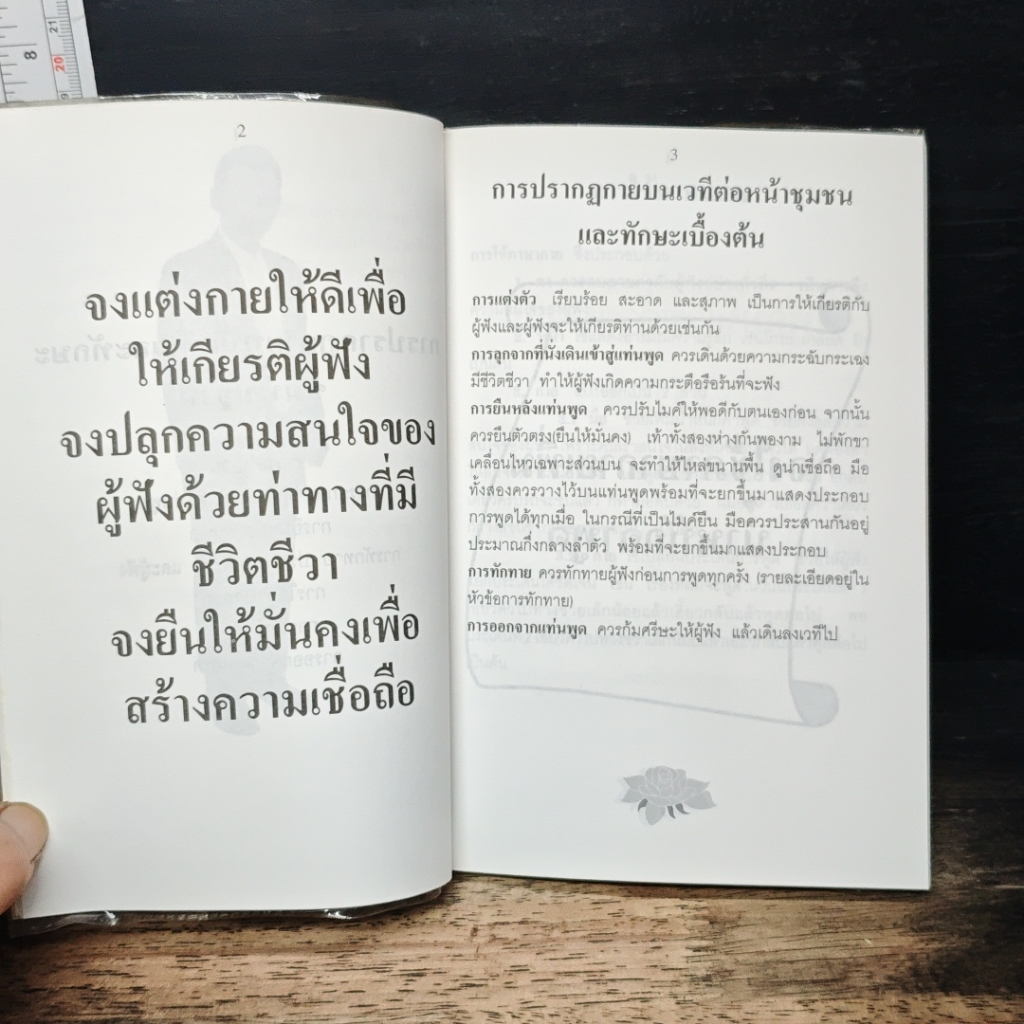 8
21
20
2
จงแต่งกายให้ดีเพื่อ
ให้เกียรติผู้ฟัง
จงปลุกความสนใจของ
ผู้ฟังด้วยท่าทางที่มี
ชีวิตชีวา
จงยืนให้มั่นคงเพื่อ
สร้างความเชื่อถือ
3
การปรากฏกายบนเวทีต่อหน้าชุมชน
และทักษะเบื้องต้น
การแต่งตัว เรียบร้อย สะอาด และสุภาพ เป็นการให้เกียรติกับ
ผู้ฟังและผู้ฟังจะให้เกียรติท่านด้วยเช่นกัน
การลุกจากที่นั่งเดินเข้าสู่แท่นพูด ควรเดินด้วยความกระฉับกระเฉง
มีชีวิตชีวา ทำให้ผู้ฟังเกิดความกระตือรือร้นที่จะฟัง
การยืนหลังแท่นพูด ควรปรับไมค์ให้พอดีกับตนเองก่อน จากนั้น
ควรยืนตัวตรง(ยืนให้มั่นคง) เท้าทั้งสองห่างกันพองาม ไม่พักขา
เคลื่อนไหวเฉพาะส่วนบน จะทำให้ไหล่ขนานพื้น ดูน่าเชื่อถือ มือ
ทั้งสองควรวางไว้บนแท่นพูดพร้อมที่จะยกขึ้นมาแสดงประกอบ
การพูดได้ทุกเมื่อ ในกรณีที่เป็นไมค์ยืน มือควรประสานกันอยู่
ประมาณกึ่งกลางลำตัว พร้อมที่จะยกขึ้นมาแสดงประกอบ
การทักทาย ควรทักทายผู้ฟังก่อนการพูดทุกครั้ง (รายละเอียดอยู่ใน
หัวข้อการทักทาย)
การออกจากแท่นพูด ควรก้มศรีษะให้ผู้ฟัง แล้วเดินลงเวทีไป